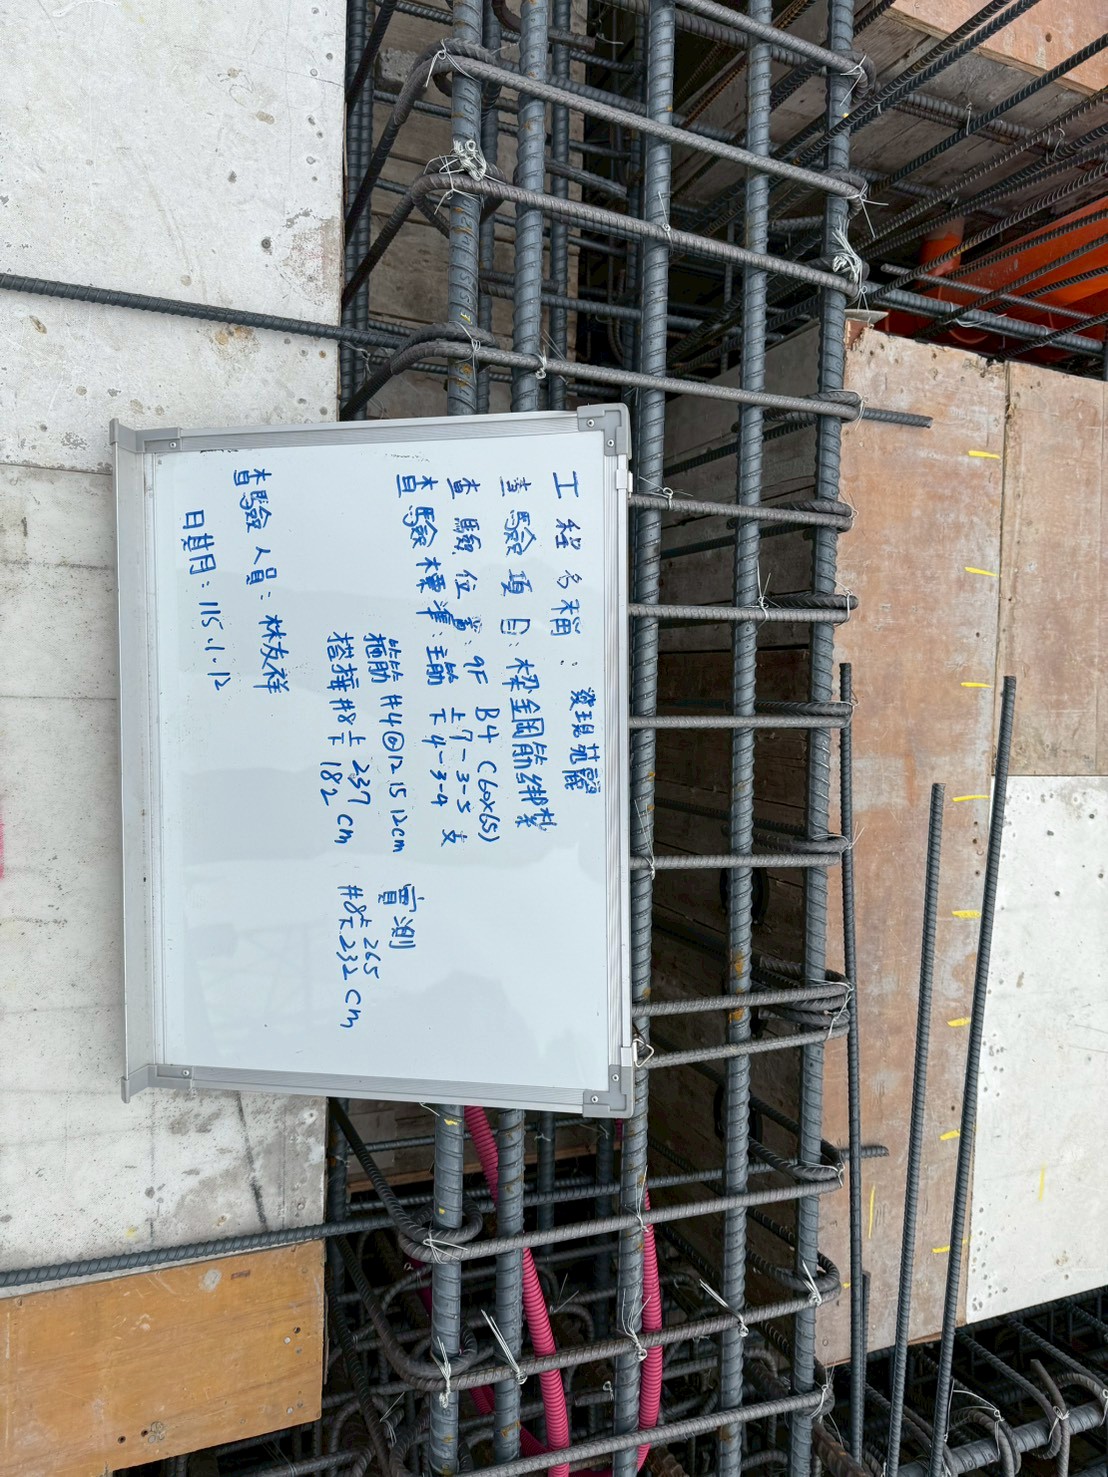 工程名稱：發現苑麗
查驗項目：樑鋼筋綁紮
查驗位置：9F B4 (60x65)
查驗標準：主筋 上7-3-5 下4-3-4 支
箍筋 #4@12 15 12cm
搭接 #8 上 237 下 182 cm
實測
#8 上 265 下 232 cm
查驗人員：林友祥
日期：115.1.12